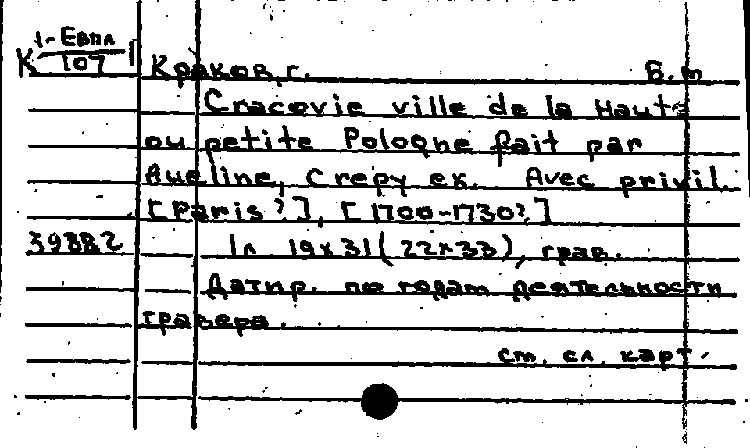 К 1-Евпл / 107
Краков, г. Б.м
Cracovie ville de la Haute
ou petite Pologne fait par
Aveline, Crepy ex. Avec privil.
[Paris?], [1700-1730?]
39882 1л 19х31(22х33), грав.
Датир. по годам деятельности
гравера.
см. сл. карт.